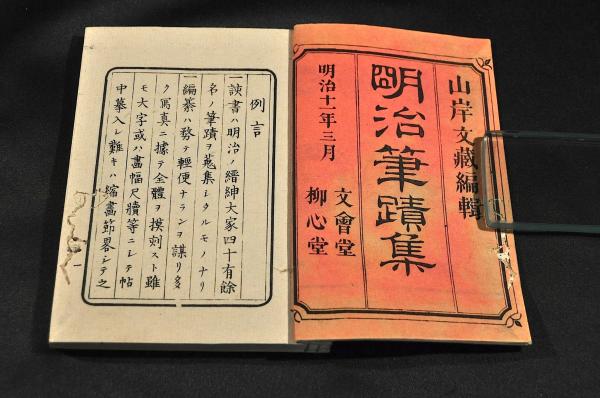 山岸文藏編輯
明治筆蹟集
明治十一年三月
文會堂
柳心堂
例言
一該書ハ明治ノ縉紳大家四十有餘
名ノ筆蹟ヲ蒐集シタルモノナリ
一編纂ハ務テ輕便ナランヲ謀リ多
ク寫真ニ據テ全體ヲ摸刻スト雖
モ大字或ハ畵幅尺牘等ニシテ帖
中摹入シ難キハ縮畵節畧シテ之